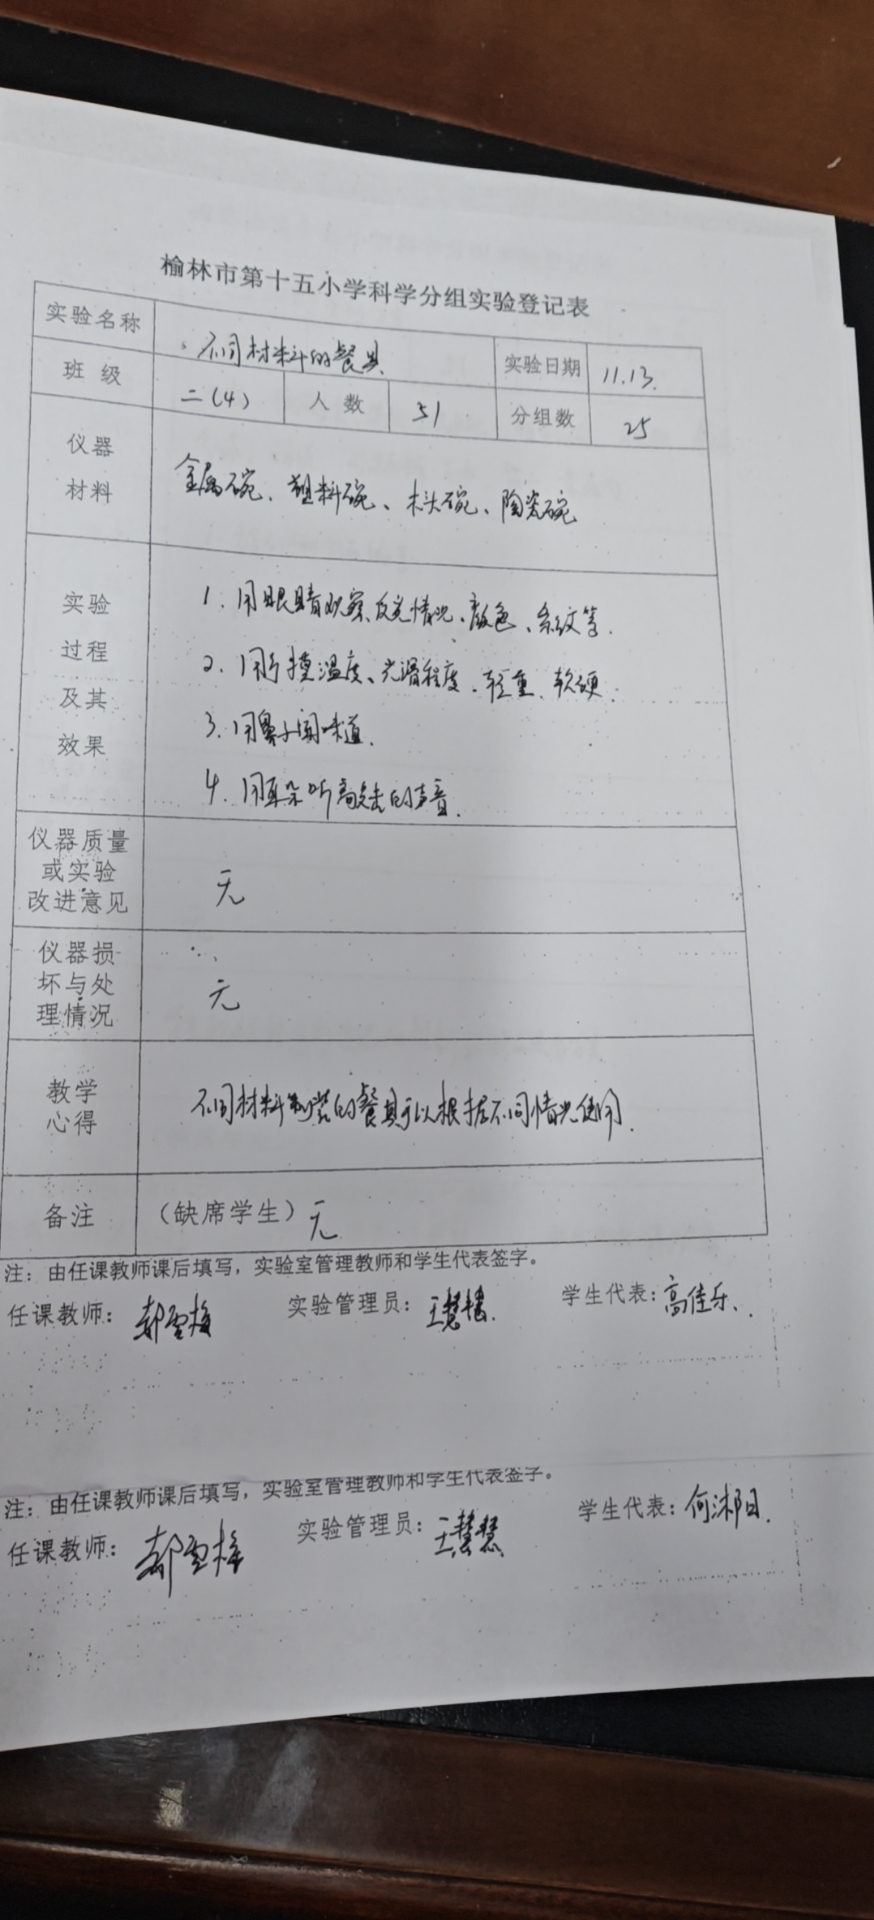 榆林市第十五小学科学分组实验登记表
实验名称 不同材料的餐具 实验日期 11.13.
班级 二(4) 人数 51 分组数 25
仪器材料 金属碗、塑料碗、木头碗、陶瓷碗
实验过程及其效果
1.用眼睛观察反光情况、颜色、条纹等.
2.用手摸温度、光滑程度、轻重、软硬.
3.用鼻子闻味道.
4.用耳朵听敲击的声音.
仪器质量或实验改进意见 无
仪器损坏与处理情况 无
教学心得 不同材料制的餐具可以根据不同情况使用.
备注 (缺席学生) 无
注：由任课教师课后填写，实验室管理教师和学生代表签字。
任课教师：郝雪梅 实验管理员：王慧慧. 学生代表：高佳乐.
注：由任课教师课后填写，实验室管理教师和学生代表签字。
任课教师：郝雪梅 实验管理员：王慧慧 学生代表：何湘日.